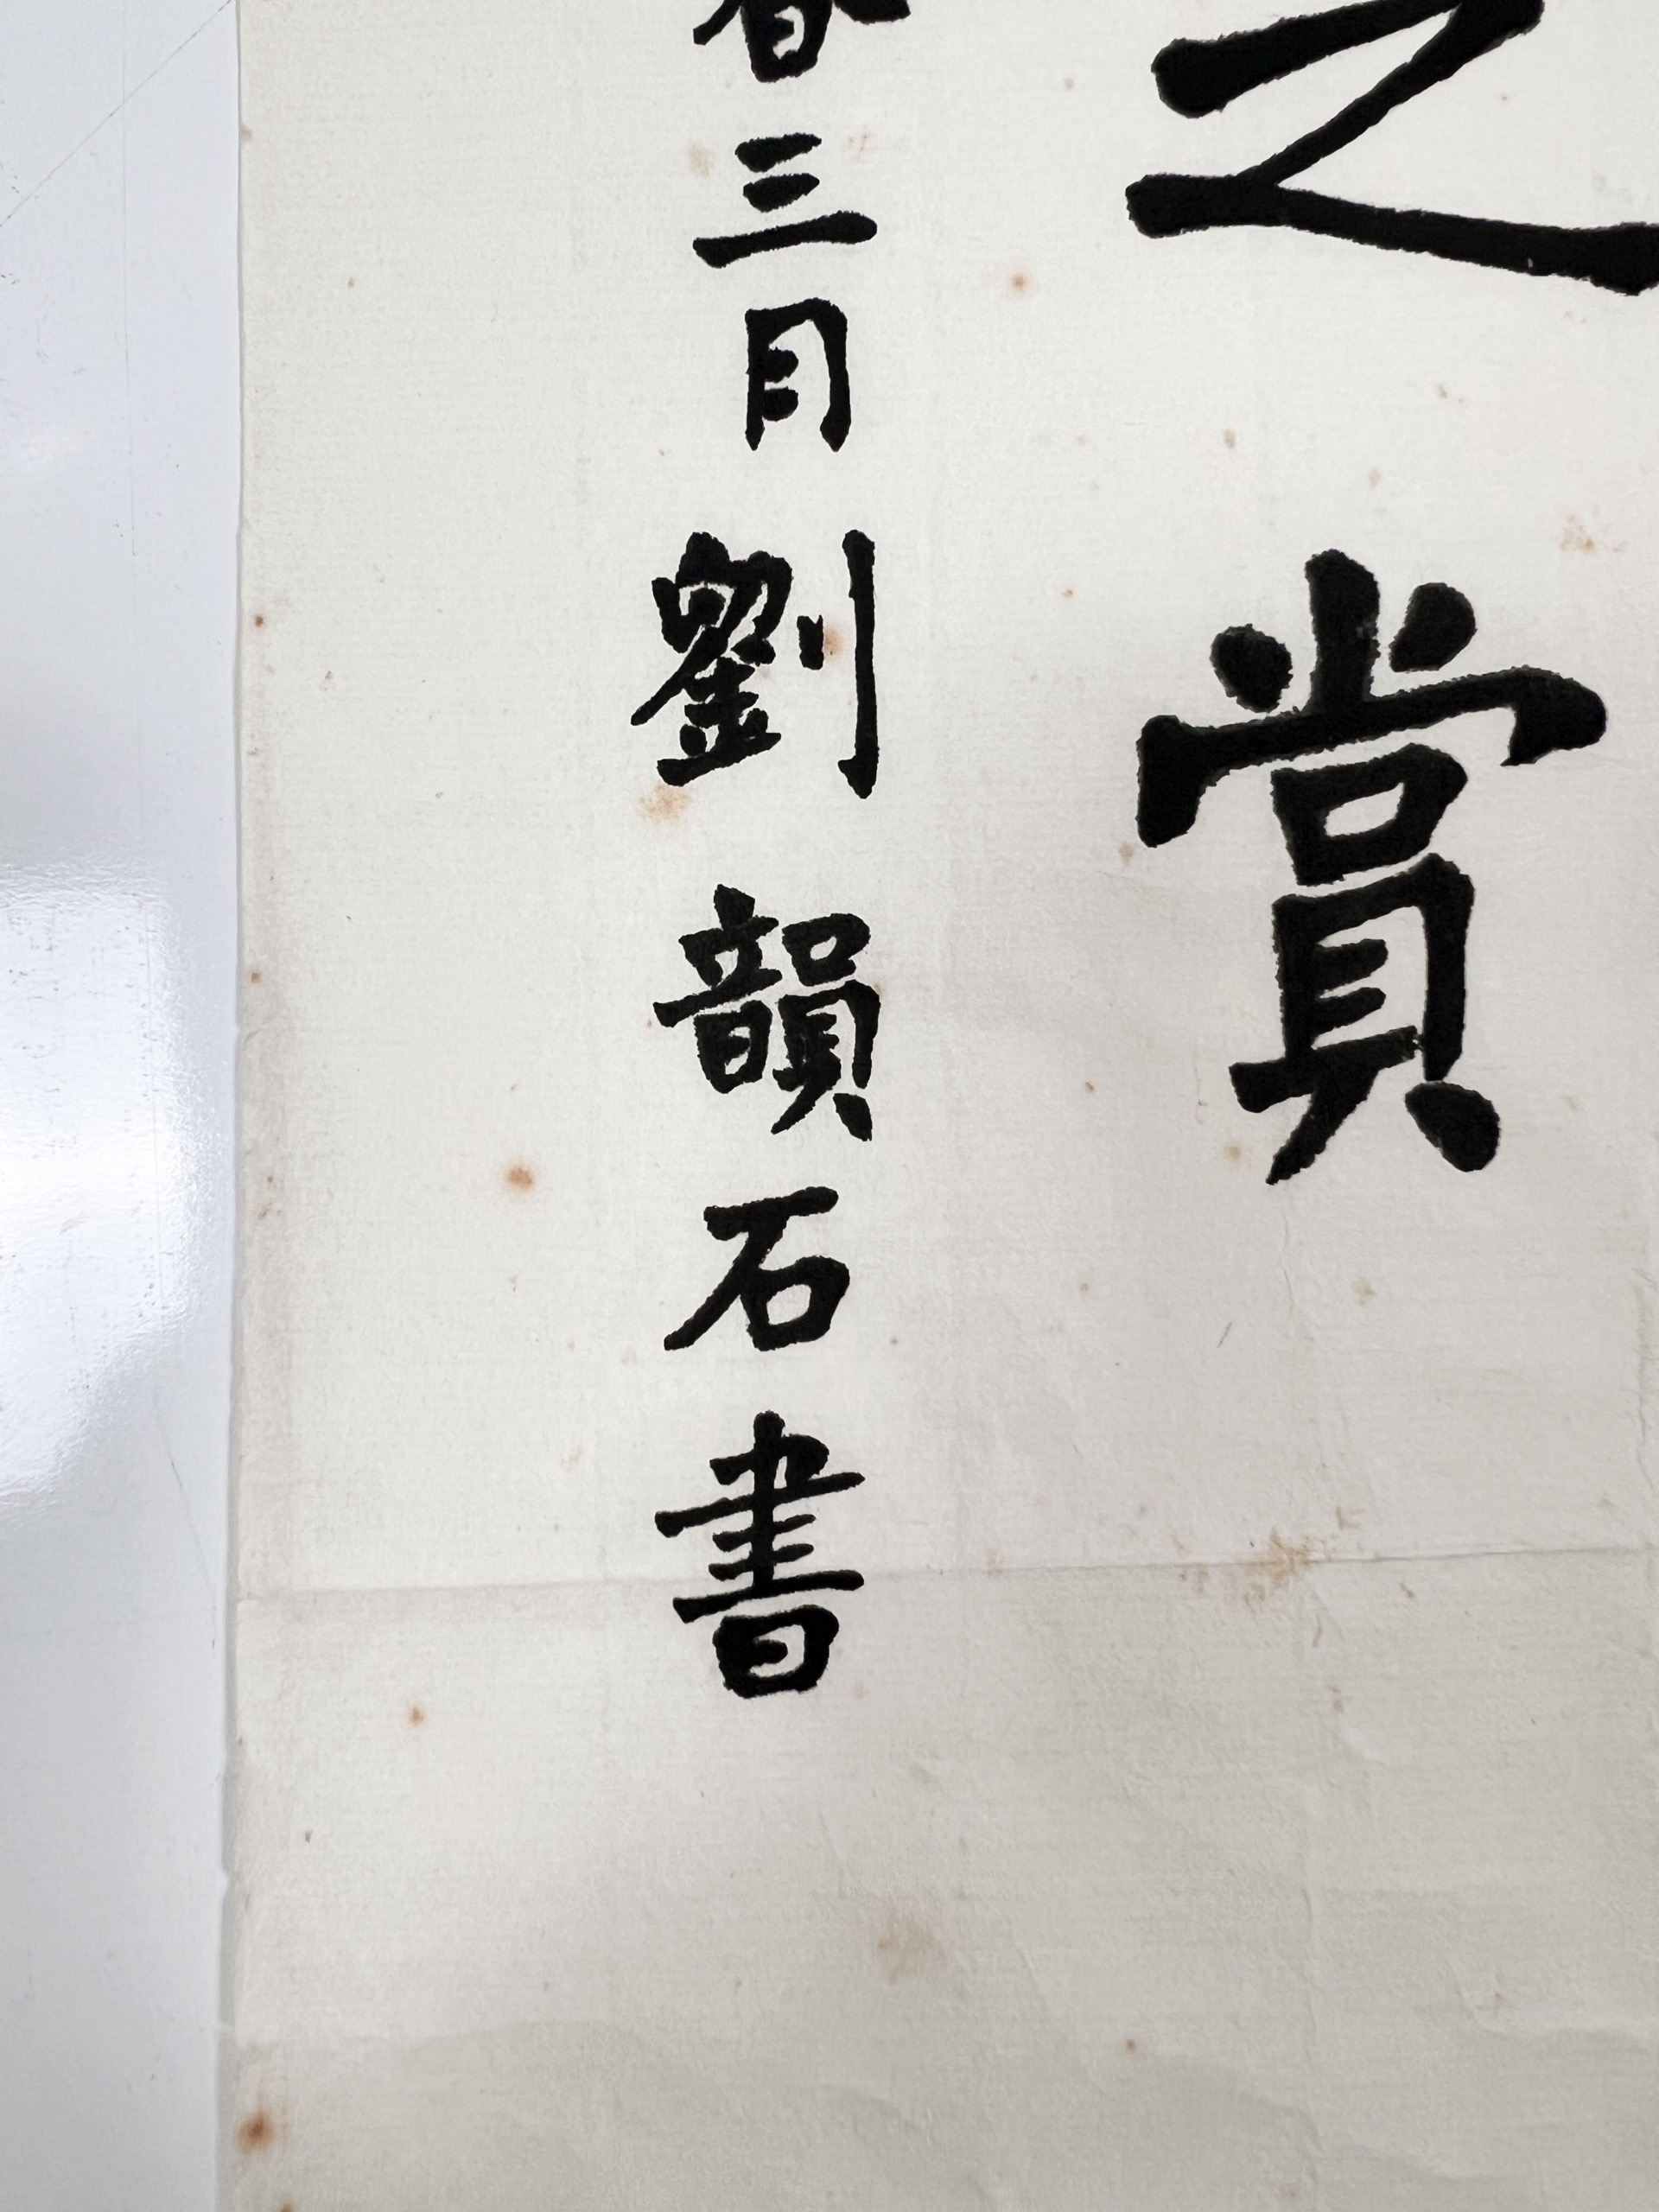 之賞
春三月劉韻石書